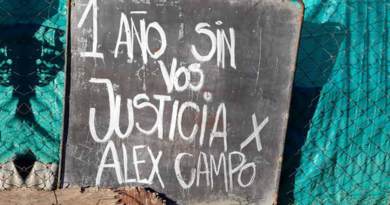 1 AÑO SIN
VOS
JUSTICIA X
ALEX CAMPO